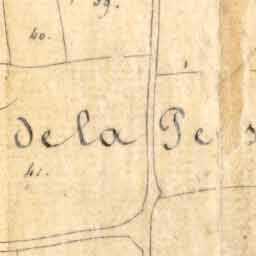 39.
40.
de la Pe
41.